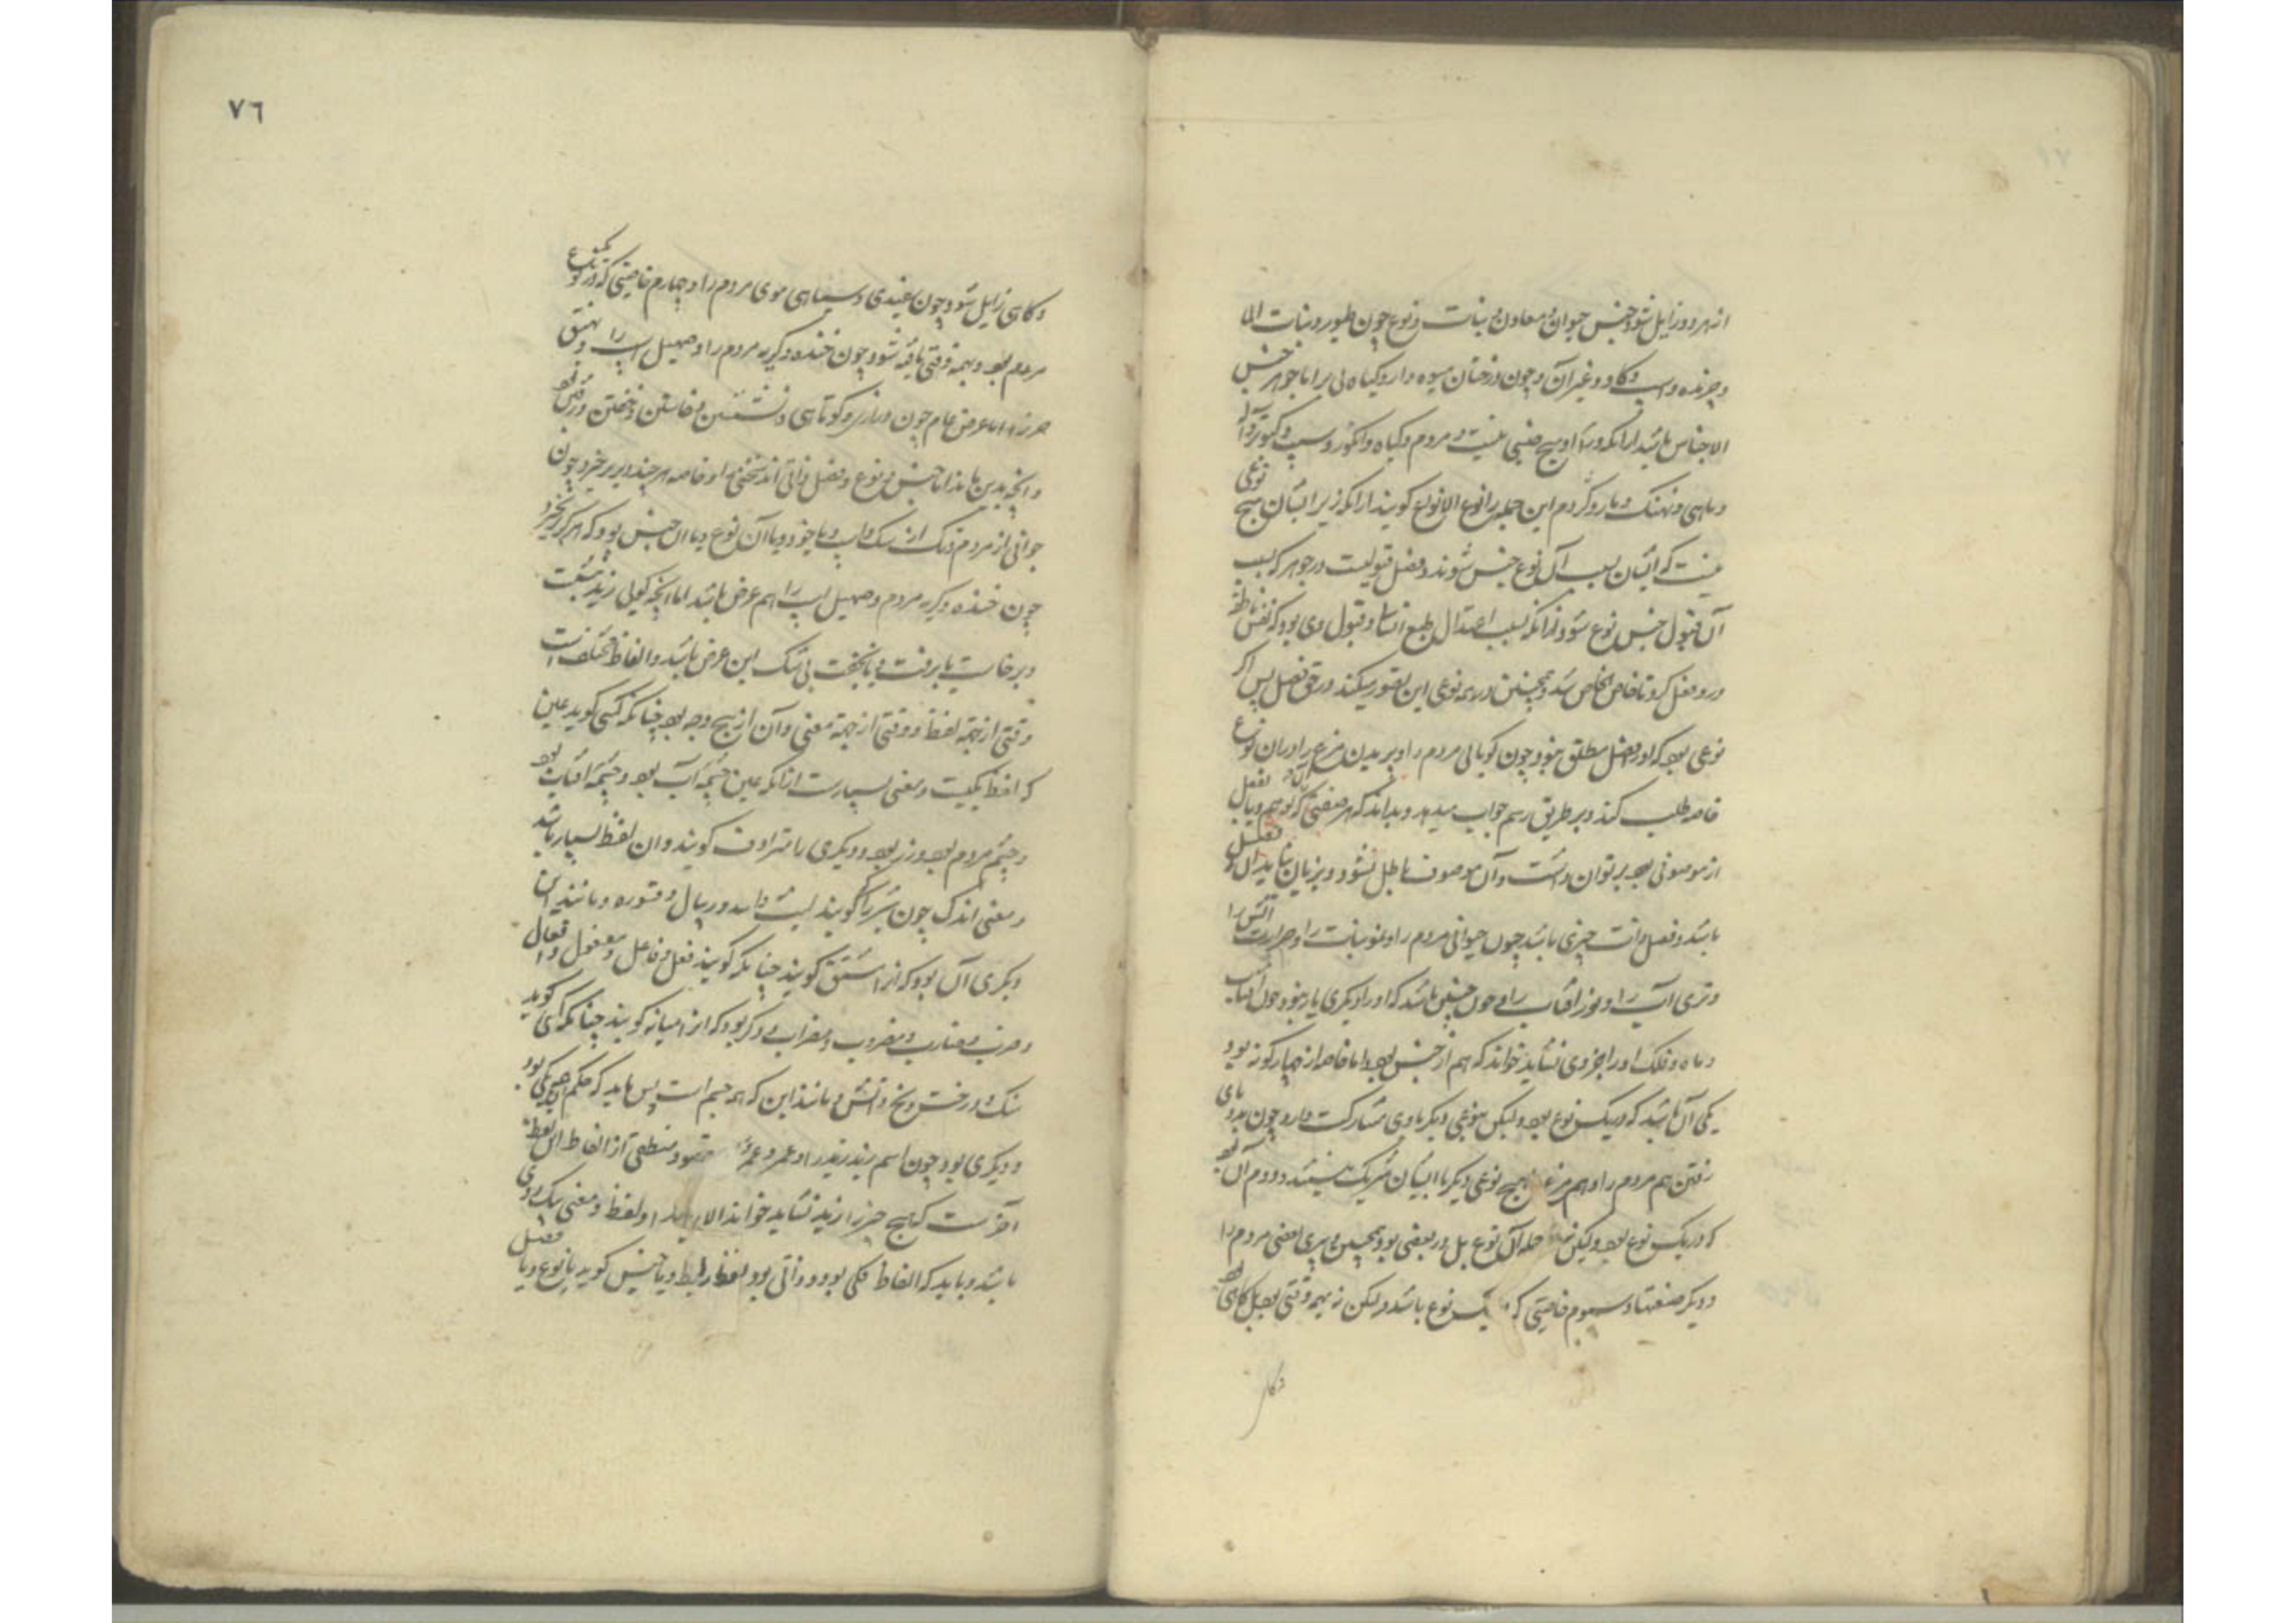 از هر دو زایل شود جنس حیوان و معادن و نبات و نوع چون طیور و نبات اما
و چرنده و اسپ و گاو و غیر آن و چون درختان میوه دار و گیاه بی بر اما جوهر جنس
الاجناس باشد از انکه ورآء او هیچ جنسی نیست و مردم و گیاه و انگور و سیب و کبوتر
و ماهی و نهنگ و مار و کژدم این جمله را نوع الانواع گویند از انکه زیر ایشان هیچ نوعی
نیست که ایشان بسبب آن نوع جنس شوند و فصل قبولیست در جوهر که بسبب
آن قبول جنس نوع شود از انکه بسبب اعتدال طبع انسان و قبول وی بود که نفس ناطقه
درو فعل کرد تا خاص الخاص شد و همچنین در همه نوعی این تصور میکند در حق فصل پس اگر
نوعی بود که او را فصل مطلق نبود چون گویایی مردم را و پریدن مرغ را در آن نوع
خاصه طلب کند و بر طریق رسم جواب میدهد و بداند که هر صفتی که بوهم و یا بفعل
از موصوفی بود بر توان داشت و آن موصوف باطل نشود و بزیان نیاید آن فصل
باشد و فصل ذات چیزی باشد چون حیوانی مردم را و نمو نبات را و حرارت آتش را
و تری آب را و نور آفتاب را و چون جنس باشد که او را دیگری یار نبود چون آفتاب
و ماه و فلک او را بجزوی نشاید خواند که هم از جنس بود اما خاصه از چهار گونه بود
یکی آن باشد که در یک نوع بود ولیکن نوعی دیگر با وی مشارکت دارد چون بدو پای
رفتن هم مردم را و هم مرغ را هیچ نوعی دیگر با ایشان شریک نیستند و دوم آن بود
که در یک نوع بود ولیکن نه جمله آن نوع بل در بعضی بود همچنین دبیری بعضی مردم را
و دیگر صنعتها و سیوم خاصیتی که یک نوع باشد ولیکن نه بهمه وقتی بود بل گاهی بود
و گاه
٧٦
و گاهی زایل شود چون سفیدی و سیاهی موی مردم را و چهارم خاصیتی که در یک نوع
مردم بود و بهمه وقتی یافته شود چون خنده و گریه مردم را و صهیل اسپ را و نهیق
خر را اما عرض عام چون درازی و کوتاهی و نشستن و خاستن و خفتن و رفتن بود
و آنچه بدین ماند اما جنس و نوع و فصل ذاتی اند و خاصه هر چند دیر بر خیزد چون
جوانی از مردم و تک از سگ و اسپ و یا خود و یا آن نوع و یا آن جنس بود که هرگز بر نخیزد
چون خنده و گریه مردم و صهیل اسپ را هم عرض باشد اما آنچه گویی زید نشست
و برخاست یا برفت و یا بخفت بی شک این عرض باشد و الفاظ مختلف است
وقتی از جهة لفظ و وقتی از جهة معنی و آن از پنج وجه بود چنانکه کسی گوید عین
که لفظ یکیست و معنی بسیارست از انکه عین چشمه آب بود و چشمه آفتاب بود
و چشم مردم بود و زر بود و دیگری را مترادف گویند و آن لفظ بسیار باشد
و معنی اندک چون شیر را گویند لیث و اسد و ریبال و قسوره و مانند این
دیگری آن بود که از اشتق گویند چنانکه گویند فعل و فاعل و مفعول و افعال
و ضرب و ضارب و مضروب و مضراب و دیگر بود که از امیانه گویند چنانکه کسی گوید
سنگ و درخت و یخ و آتش و مانند این که همه جسم است پس باید که حکم همه یکی بود
و دیگری بود چون اسم زید زید را و عمرو عمرو را مقصود منطقی از الفاظ این لفظ
آخر ست که هیچ چیز را زید نشاید خواند الا زید را و لفظ و معنی یک روی
باشد و باید که الفاظ کلی بود و ذاتی بود و یا جنس گوید یا نوع و یا فصل